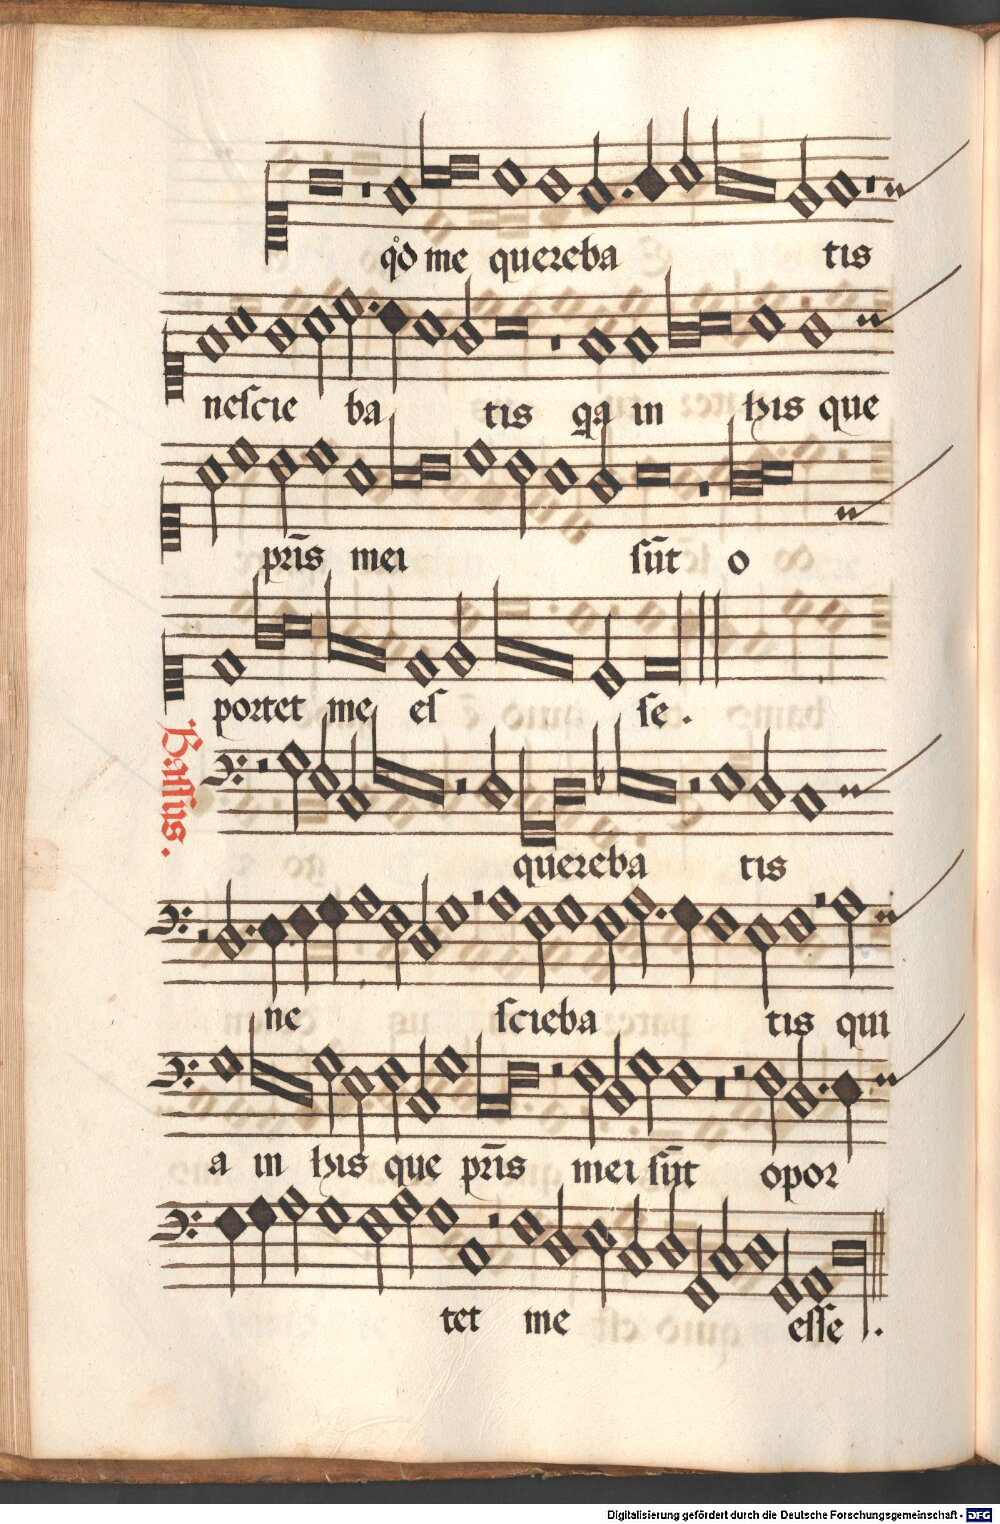 qđ me querebatis
nescie ba tis qa in his que
pr̄is mei sūt o
portet me es se .
Bassus.
quereba tis
ne scieba tis qui
a in his que pr̄is mei sūt opor
tet me esse .
Digitalisierung gefördert durch die Deutsche Forschungsgemeinschaft - DFG